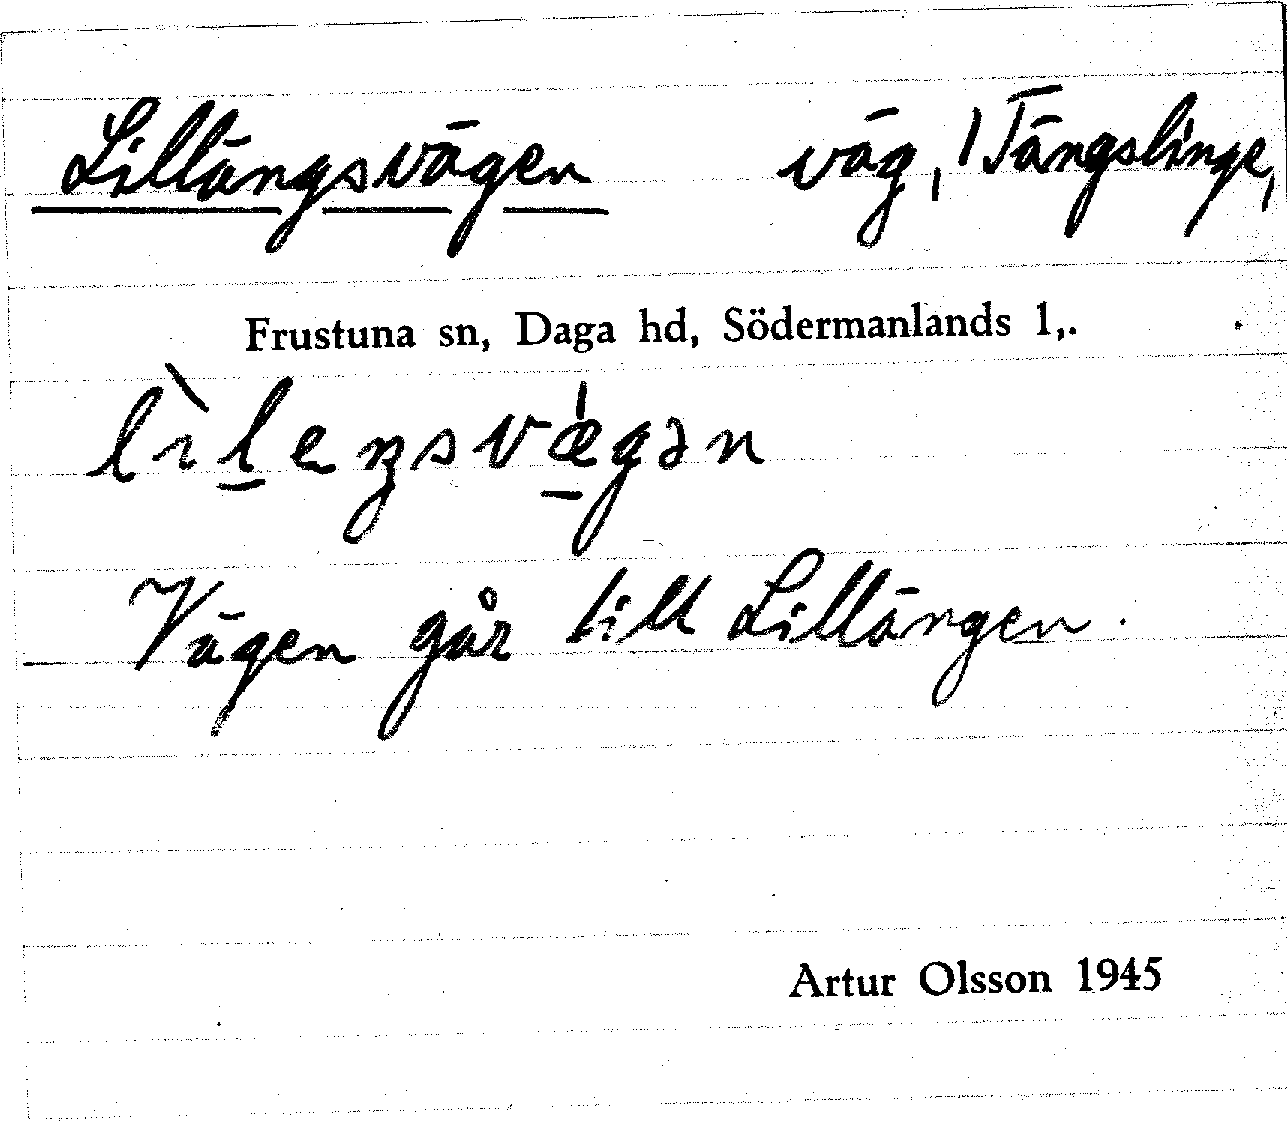 Lillängsvägen väg, 1 Tängslinge,
Frustuna sn, Daga hd, Södermanlands l,.
lìleŋsvǽgən
Vägen går till Lillängen.
Artur Olsson 1945